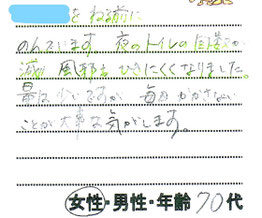 を ねる前に
のんでいます。夜のトイレの回数が
減り 風邪もひきにくくなりました。
量は少いですが 毎日 かかさない
ことが大事な気がします。
女性・男性・年齢 70代